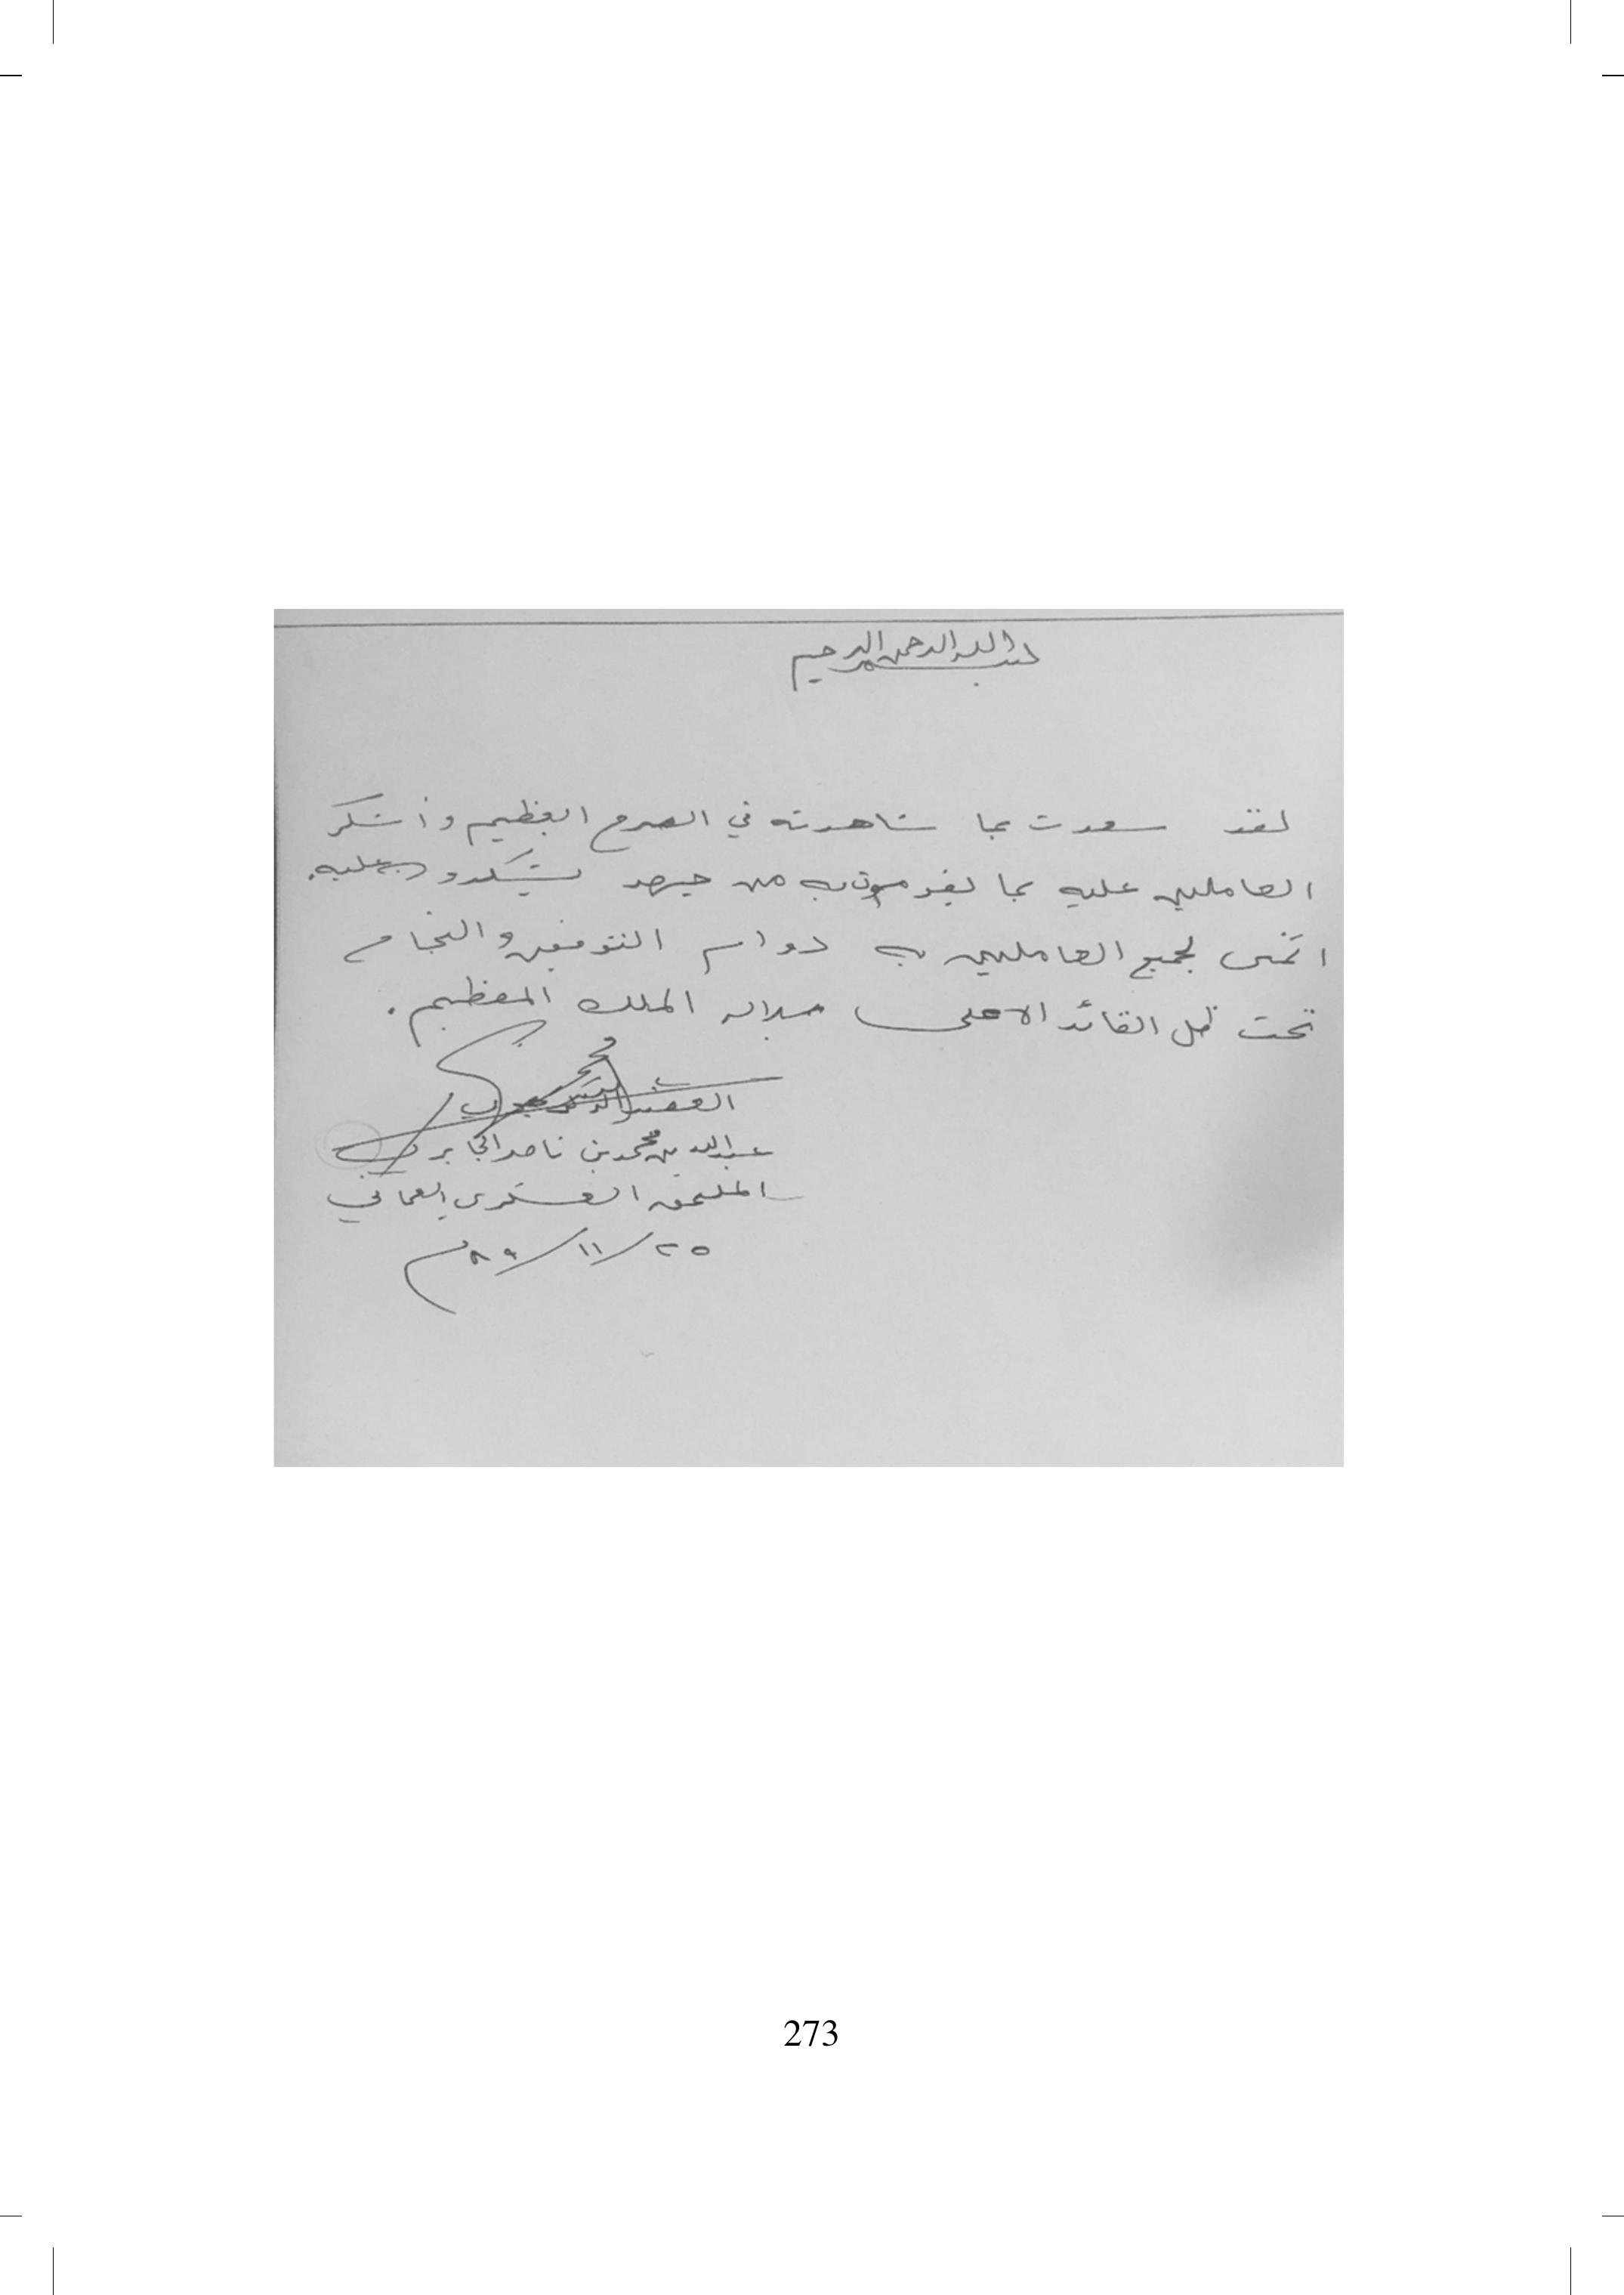 بسم الله الرحمن الرحيم
لقد سعدت بما شاهدته في الصرح العظيم وأشكر
العاملين عليه بما يقومون به من جهد يشكرون عليه.
اتمنى لجميع العاملين به دوام التوفيق والنجاح
تحت ظل القائد الاعلى جلالة الملك المعظم.
العقيد الركن
عبدالله بن محمد بن ناصر الجابري
الملحق العسكري العماني
٢٥/١١/٨٩م
273